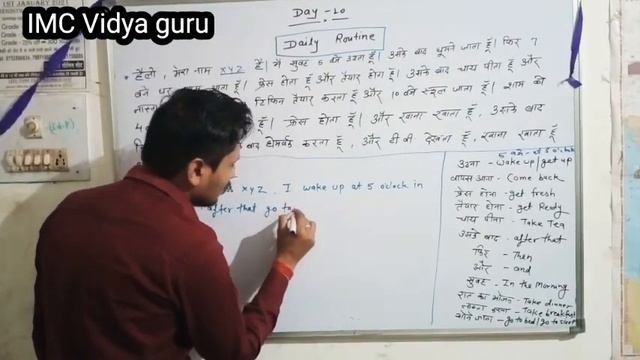 IMC Vidya guru
1ST JANUARY 2021
Grade
Day-20
Daily Routine
हैलो, मेरा नाम XYZ है। मैं सुबह 5 बजे उठता हूँ। उसके बाद घूमने जाता हूँ। फिर 7
बजे घर वापस आता हूँ। फ्रेश होता हूँ और तैयार होता हूँ। उसके बाद चाय पीता हूँ और
टिफिन तैयार करता हूँ और 10 बजे स्कूल जाता हूँ। शाम को
हूँ। फ्रेश होता हूँ। और खाना खाता हूँ, उसके बाद
बाद होमवर्क करता हूँ, और टी वी देखता हूँ, खाना खाता हूँ
XYZ. I wake up at 5 o'clock in
after that go to
5 am - at 5 o'clock
उठना - wake up/get up
वापस आना - Come back
फ्रेश होना - get fresh
तैयार होना - get Ready
चाय पीना - Take Tea
उसके बाद - after that
फिर - Then
और - and
सुबह - In the Morning
रात का भोजन - Take dinner
नाश्ता करना - Take breakfast
सोने जाना - go to bed/go to sleep